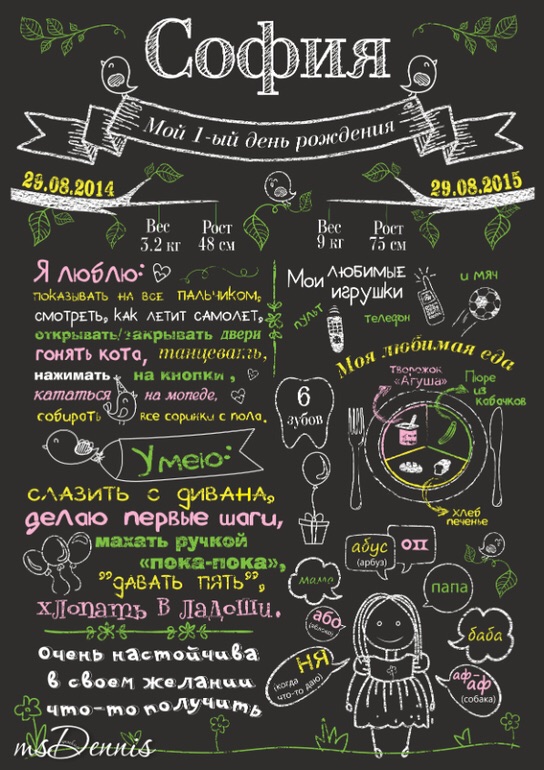 София
Мой 1-ый день рождения
29.08.2014
29.08.2015
Вес
3.2 кг
Рост
48 см
Вес
9 кг
Рост
75 см
Я люблю:
показывать на все пальчиком,
смотреть, как летит самолет,
открывать/закрывать двери
гонять кота, танцевать,
нажимать на кнопки,
кататься на мопеде,
собирать все соринки с пола.
Мои любимые
игрушки
пульт
телефон
и мяч
Моя любимая еда
творожок
«Агуша»
Пюре
из
кабачков
хлеб
печенье
6
зубов
Умею:
слазить с дивана,
делаю первые шаги,
махать ручкой
«пока-пока»,
"давать пять",
хлопать в ладоши.
Очень настойчива
в своем желании
что-то получить
абус
(арбуз)
оп
мама
папа
або
(яблоко)
баба
НЯ
(когда
что-то даю)
аф-
аф
(собака)
msDennis